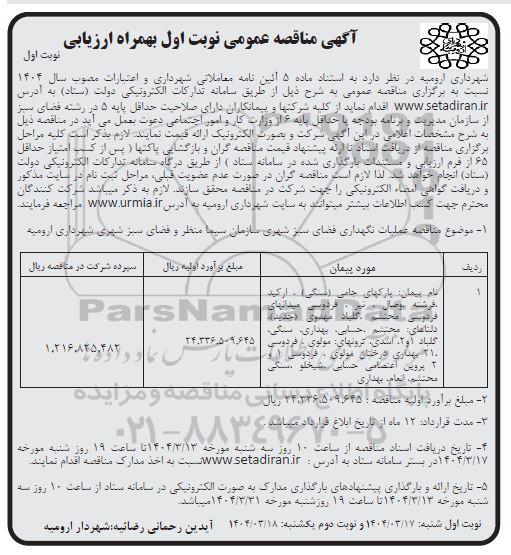 آگهی مناقصه عمومی نوبت اول بهمراه ارزیابی
نوبت اول
شهرداری ارومیه در نظر دارد به استناد ماده ۵ آئین نامه معاملاتی شهرداری و اعتبارات مصوب سال ۱۴۰۴
نسبت به برگزاری مناقصه عمومی به شرح ذیل از طریق سامانه تدارکات الکترونیکی دولت (ستاد) به آدرس
www.setadiran.ir اقدام نماید از کلیه شرکتها و پیمانکاران دارای صلاحیت حداقل پایه ۵ در رشته فضای سبز
از سازمان مدیریت و برنامه بودجه یا حداقل پایه ۶ از وزارت کار و امور اجتماعی دعوت بعمل می آید در مناقصه ذیل
به شرح مشخصات اعلامی در این آگهی شرکت و بصورت الکترونیک ارائه قیمت نمایند. لازم بذکر است کلیه مراحل
برگزاری مناقصه از دریافت اسناد تا ارئه پیشنهاد قیمت مناقصه گران و بازگشایی پاکتها ( پس از کسب امتیاز حداقل
۶۵ از فرم ارزیابی و مستندات بارگذاری شده در سامانه ستاد ) از طریق درگاه سامانه تدارکات الکترونیکی دولت
(ستاد) انجام خواهد شد. لذا لازم است مناقصه گران در صورت عدم عضویت قبلی، مراحل ثبت نام در سایت مذکور
و دریافت گواهی امضاء الکترونیکی را جهت شرکت در مناقصه محقق سازند. لازم به ذکر میباشد شرکت کنندگان
محترم جهت کسب اطلاعات بیشتر میتوانند به سایت شهرداری ارومیه به آدرس www.urmia.ir مراجعه فرمایند.
۱- موضوع مناقصه عملیات نگهداری فضای سبز شهری سازمان سیما منظر و فضای سبز شهری شهرداری ارومیه
ردیف مورد پیمان مبلغ برآورد اولیه ریال سپرده شرکت در مناقصه ریال
۱ نام پیمان: پارکهای جامی (سنگی) ، ارکید
،فرشته ،وصال ، نیز ، فردوسی میدانهای
فردوسی محتشم ،گلباد مهدوی (جدید)،
دلتاهای: محتشم ،حسابی، بهداری، سنگی،
گلباد ۱و۲، اسدی، ترونهای: مولوی ، فردوسی
،۲۱ بهداری درختان مولوی ، فردوسی ۱ و
۲ پروین اعتصامی حسابی ،شیخلو ،سنگی
محتشم، انعام، بهداری
۲۴،۳۳۶،۵۰۹،۶۴۵ ۱،۲۱۶،۸۲۵،۴۸۲
۲- مبلغ برآورد اولیه مناقصه : ۲۴،۳۳۶،۵۰۹،۶۴۵ ریال
۳- مدت قرارداد: ۱۲ ماه از تاریخ ابلاغ قرارداد میباشد.
۴- تاریخ دریافت اسناد مناقصه از ساعت ۱۰ روز سه شنبه مورخه ۱۴۰۴/۳/۱۳تا ساعت ۱۹ روز شنبه مورخه
۱۴۰۴/۳/۱۷در بستر سامانه ستاد به آدرس : www.setadiran.ir نسبت به اخذ مدارک مناقصه اقدام نمایند.
۵- تاریخ ارائه و بارگذاری پیشنهادهای بارگذاری مدارک به صورت الکترونیکی در سامانه ستاد از ساعت ۱۰ روز سه
شنبه مورخه ۱۴۰۴/۳/۱۳تا ساعت ۱۹ روزشنبه مورخه ۱۴۰۴/۳/۳۱میباشد.
نوبت اول شنبه: ۱۴۰۴/۰۳/۱۷و نوبت دوم یکشنبه: ۱۴۰۴/۰۳/۱۸ آیدین رحمانی رضائیه:شهردار ارومیه
ParsNamadData
پایگاه اطلاع رسانی مناقصه و مزایده
۰۲۱-۸۸۳۴۹۶۷۰-۵